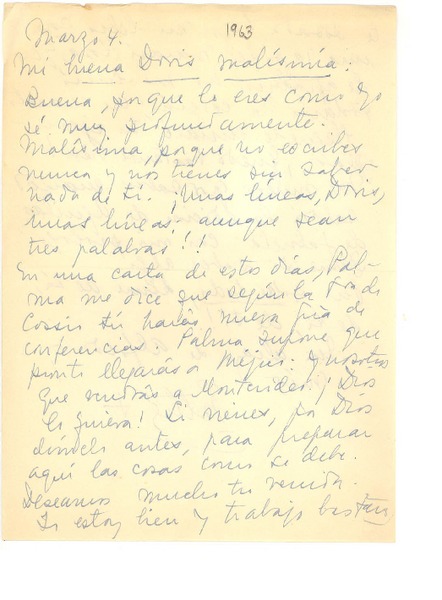 Marzo 4. 1963
Mi buena Doris malísima:
Buena, porque lo eres como yo
sé muy profundamente.
Malísima, porque no escribes
nunca y nos tienes sin saber
nada de ti. ¡Unas líneas, Doris,
unas líneas; aunque sean
tres palabras!!
En una carta de estos días, Pal-
ma me dice que según la Sra de
Cossío tú harás nueva jira de
conferencias. Palma supone que
pronto llegarás a Méjico. Y nosotros
que vendrás a Montevideo. ¡Dios
lo quiera! Si vienes, por Dios
dímelo antes, para preparar
aquí las cosas como se debe.
Deseamos mucho tu venida.
Yo estoy bien y trabajo bastan